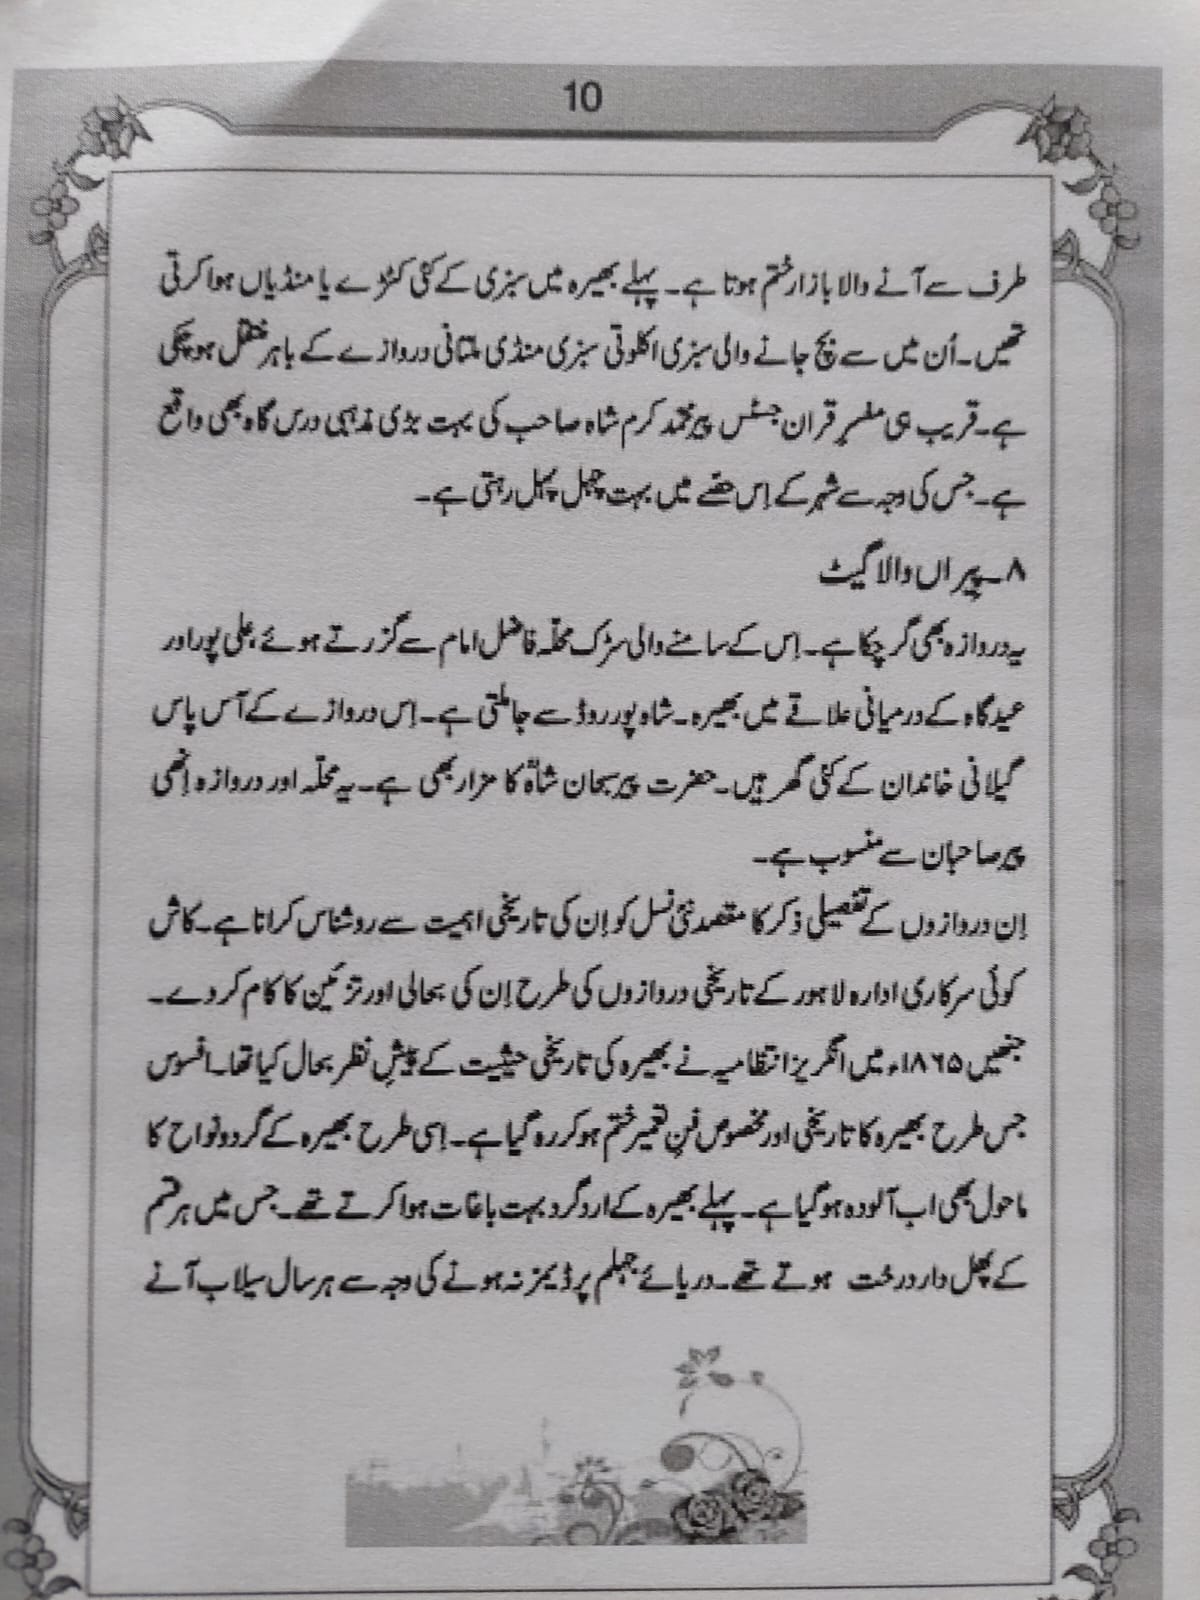 10
طرف سے آنے والا بازار ختم ہوتا ہے۔ پہلے بھیرہ میں سبزی کے کئی کٹڑے یا منڈیاں ہوا کرتی
تھیں۔ اُن میں سے بچ جانے والی سبزی اکلوتی سبزی منڈی ملتانی دروازے کے باہر منتقل ہو چکی
ہے۔ قریب ہی مفسرِ قران جسٹس پیر محمد کرم شاہ صاحب کی بہت بڑی مذہبی درس گاہ بھی واقع
ہے۔ جس کی وجہ سے شہر کے اِس حصّے میں بہت چہل پہل رہتی ہے۔
۸۔ پیراں والا گیٹ
یہ دروازہ بھی گر چکا ہے۔ اِس کے سامنے والی سڑک محلّہ فاضل امام سے گزرتے ہوئے، علی پور اور
عیدگاہ کے درمیانی علاقے میں بھیرہ۔ شاہ پور روڈ سے جا ملتی ہے۔ اِس دروازے کے آس پاس
گیلانی خاندان کے کئی گھر ہیں۔ حضرت پیر سبحان شاہؒ کا مزار بھی ہے۔ یہ محلّہ اور دروازہ اِنھی
پیر صاحبان سے منسوب ہے۔
اِن دروازوں کے تفصیلی ذکر کا مقصد نئی نسل کو اِن کی تاریخی اہمیت سے روشناس کرانا ہے۔ کاش
کوئی سرکاری ادارہ لاہور کے تاریخی دروازوں کی طرح اِن کی بحالی اور تزئین کا کام کر دے۔
جنھیں ۱۸۶۵ء میں انگریز انتظامیہ نے بھیرہ کی تاریخی حیثیت کے پیشِ نظر بحال کیا تھا۔ افسوس
جس طرح بھیرہ کا تاریخی اور مخصوص فنِ تعمیر ختم ہو کر رہ گیا ہے۔ اِسی طرح بھیرہ کے گرد و نواح کا
ماحول بھی اب آلودہ ہو گیا ہے۔ پہلے بھیرہ کے ارد گرد بہت باغات ہوا کرتے تھے۔ جس میں ہر قسم
کے پھل دار درخت ہوتے تھے۔ دریائے جہلم پر ڈیمز نہ ہونے کی وجہ سے ہر سال سیلاب آنے